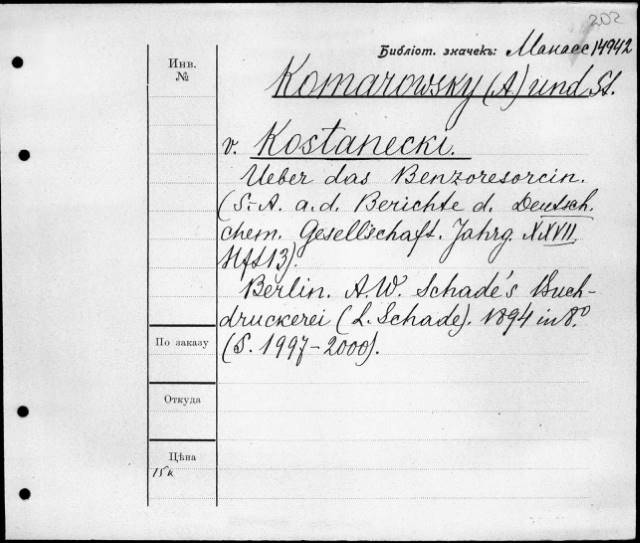 202
Библіот. значекъ: Манасс 14942
Инв.
№
Komarowsky (A) und St.
v. Kostanecki.
Ueber das Benzoresorcin.
(S.-A. a. d. Berichte d. Deutsch.
chem. Gesellschaft. Jahrg. XXVII,
Hft 13).
Berlin. A. W. Schade's Buch-
druckerei (L. Schade). 1894 in 8.°
(S. 1997-2000).
По заказу
Откуда
Цѣна
15 к